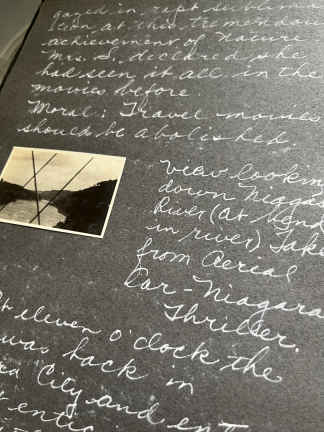 gazed in rapt sublima
tion at this tremendous
achievement of nature
Mrs. S. declared she
had seen it all in the
movies before
Moral: Travel movies
should be abolished.
View looking
down Niaga
River (at bend
in river) Take
from Aerial
Car - Niagara
Thriller.
At eleven o'clock the
was back in
City and